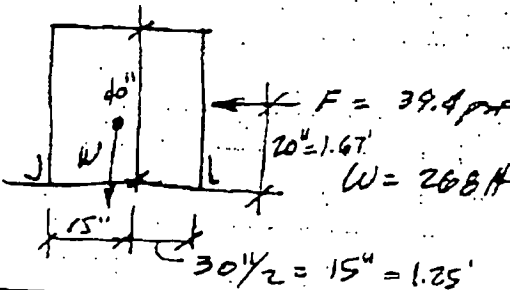 40"
F = 39.4 psf
20" = 1.67'
J W L
W = 268 #
15"
30"/2 = 15" = 1.25'